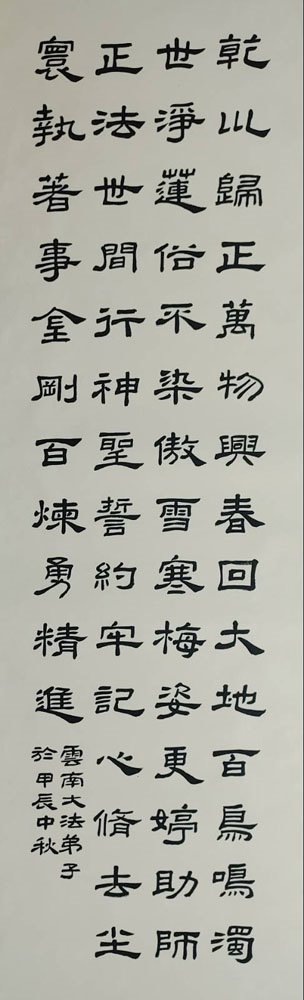 乾川歸正萬物興春回大地百鳥鳴濁
世淨蓮俗不染傲雪寒梅姿更婷助師
正法世間行神聖誓約牢記心脩去尘
寰執著事金剛百煉勇精進
雲南大法弟子
於甲辰中秋